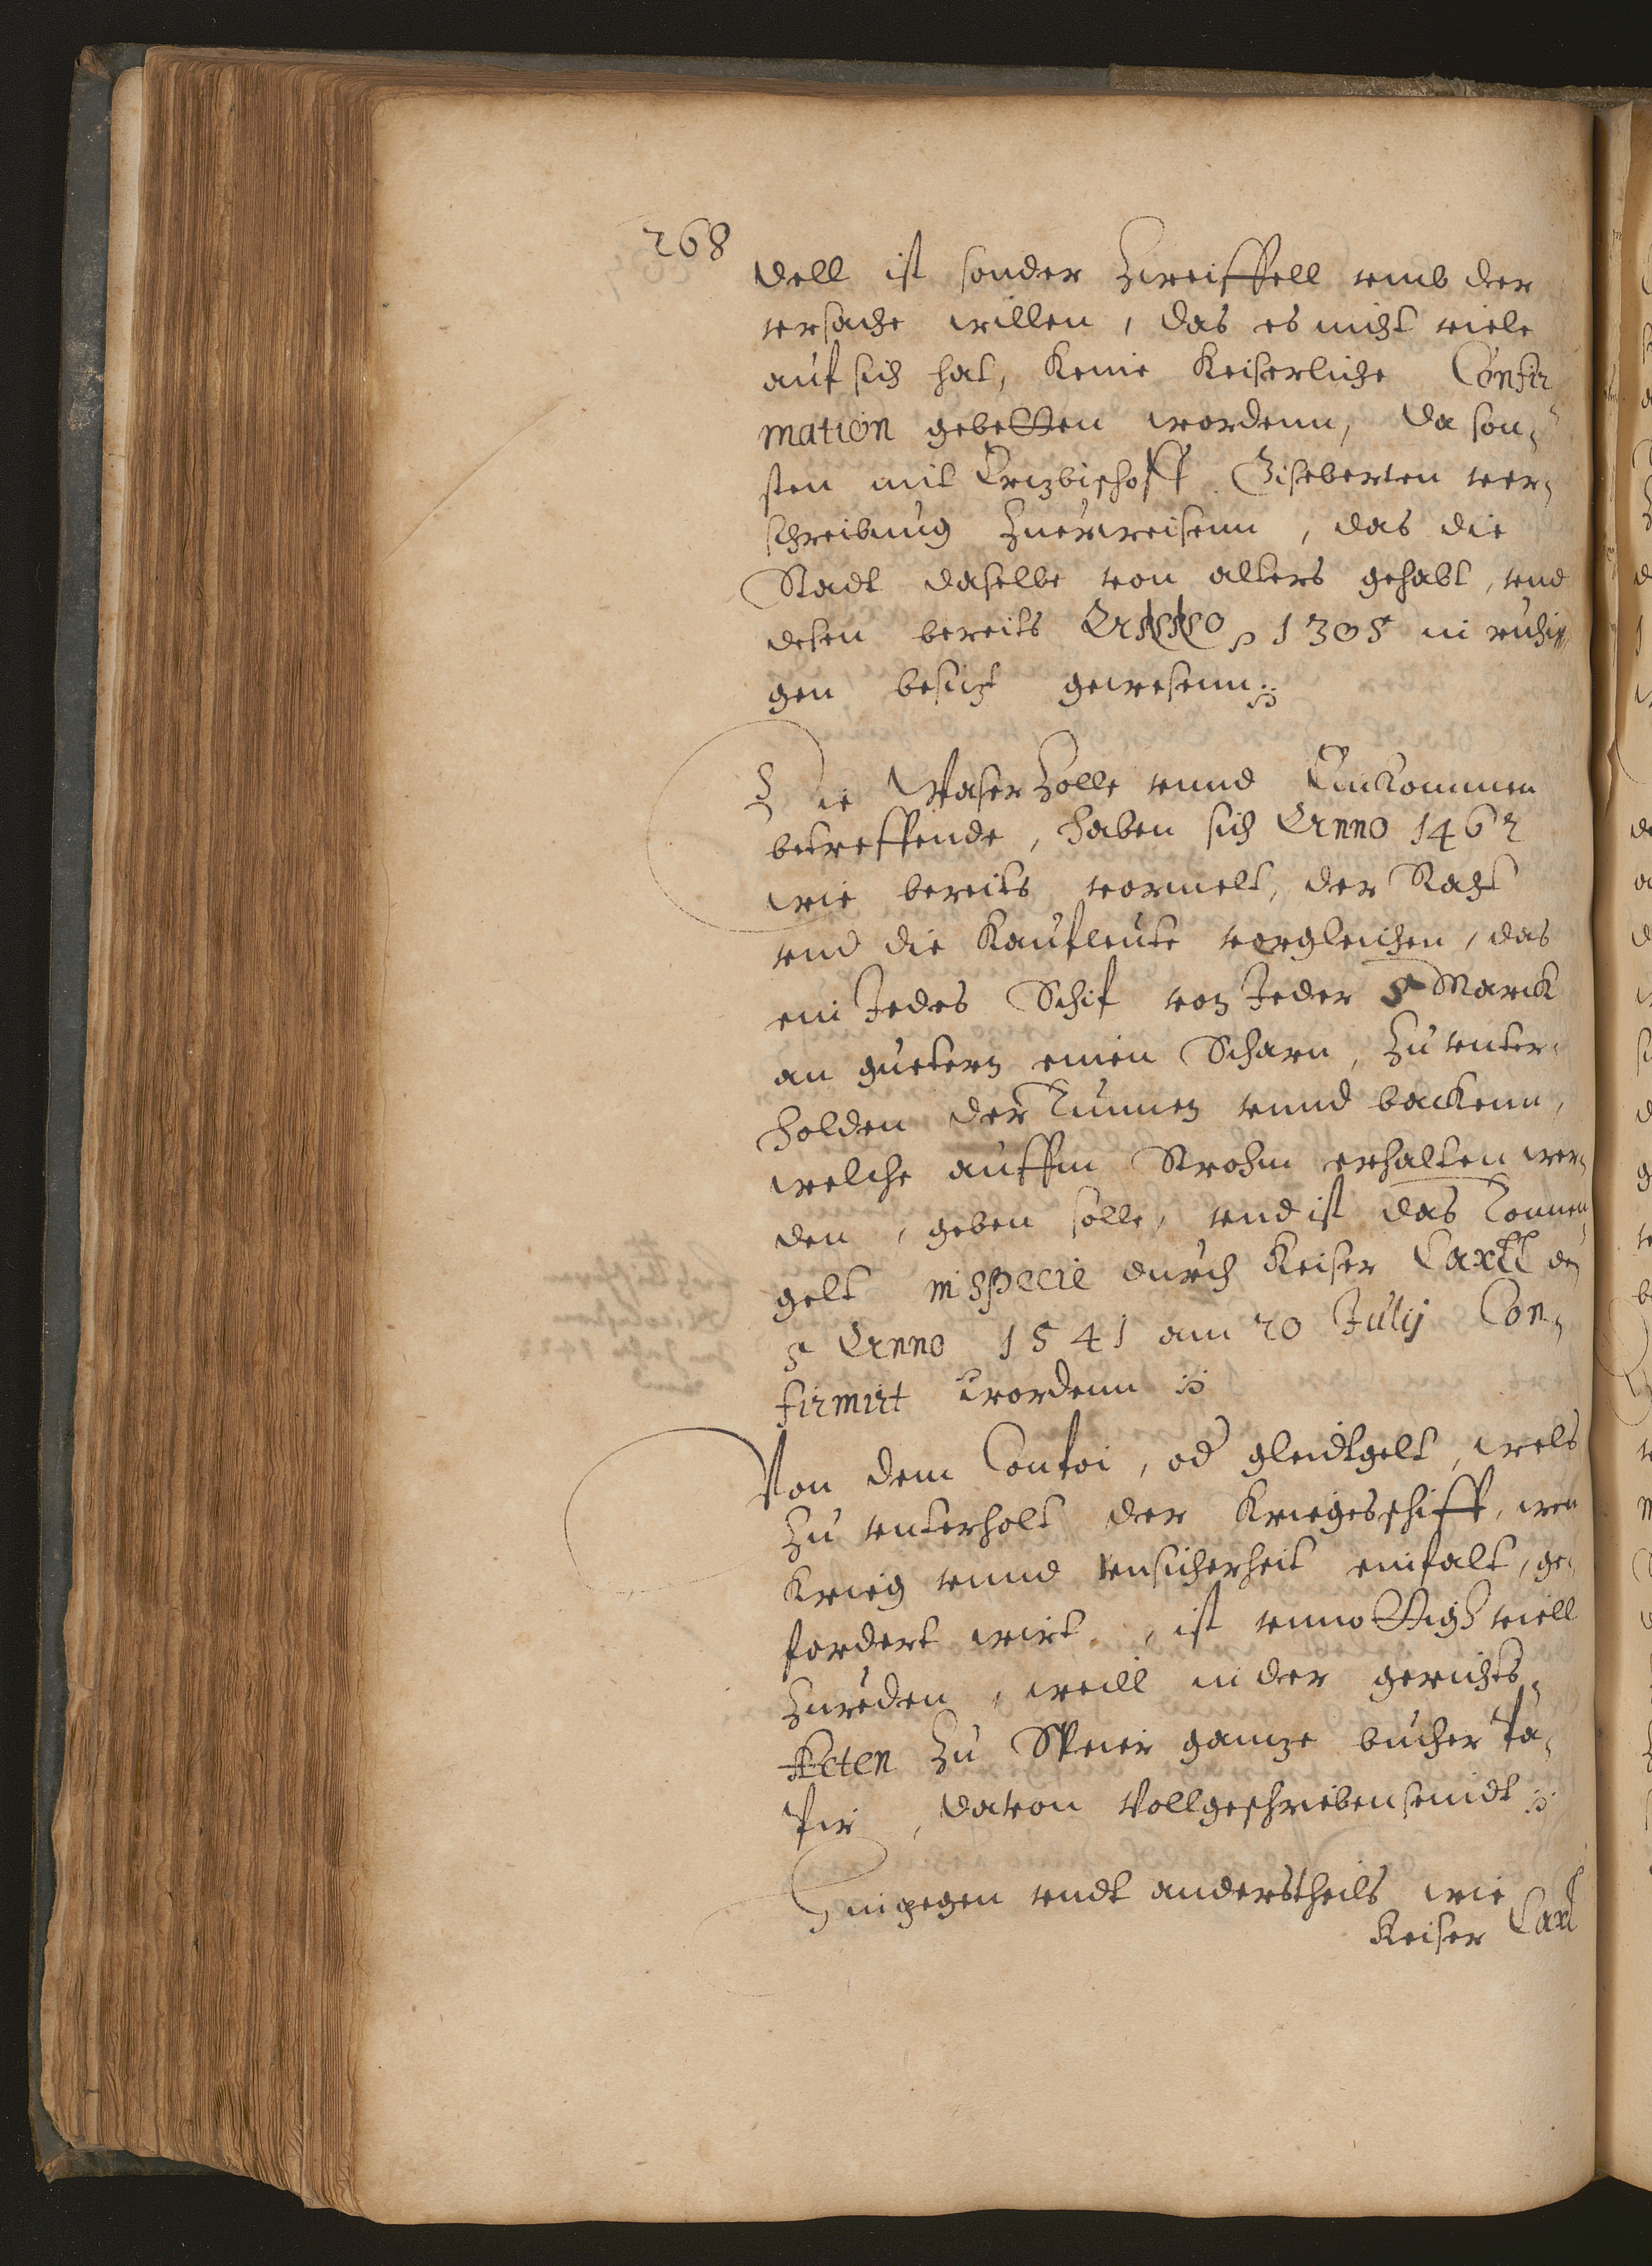 268
dell ist sonder Zweiffell vmb der
vrsache willen, das es nicht viele
auf sich hat, keine keiserliche Confir
mation gebetten wordenn, da son¬
sten mit Ertzbischoff Giseberten ver¬
schreibung Zuerweisenn, das die
Stadt daselbe von alters gehabt, vnd
deßen bereits Anno 1305 in ruhi¬
gen besitz gewesenn.
Die Waser Zolle vnnd Einkommen
betreffende, haben sich Anno 1462
wie bereits vormelt, der Raht
vnd die Kaufleute vorgleichen, das
ein Jedes Schif von Jeder Marck
an guetern einen Scharn, Zu vnter¬
holden der Tunnen vnnd backenn,
welche auffm Strohm erhalten wer¬
den, geben solle, vnd ist das Tonnen
gelt in specie durch Keiser Carll den
5 Anno 1541 am 20 Julij Con¬
firmirt wordenn
Von dem Confoi, od gleidtgelt, wels
Zu vnterholt der Kriegesschiff, wen
Krieg vnnd vnsicherheit einfalt, ge¬
fordert wirt, ist vnnottigh viell
Zureden, weill in der gerichts¬
Acten Zu Speier gantze bucher Pa¬
pir, davon vollgeschrieben seindt
Hingegen vndt anderstheils wie
Keiser Carl